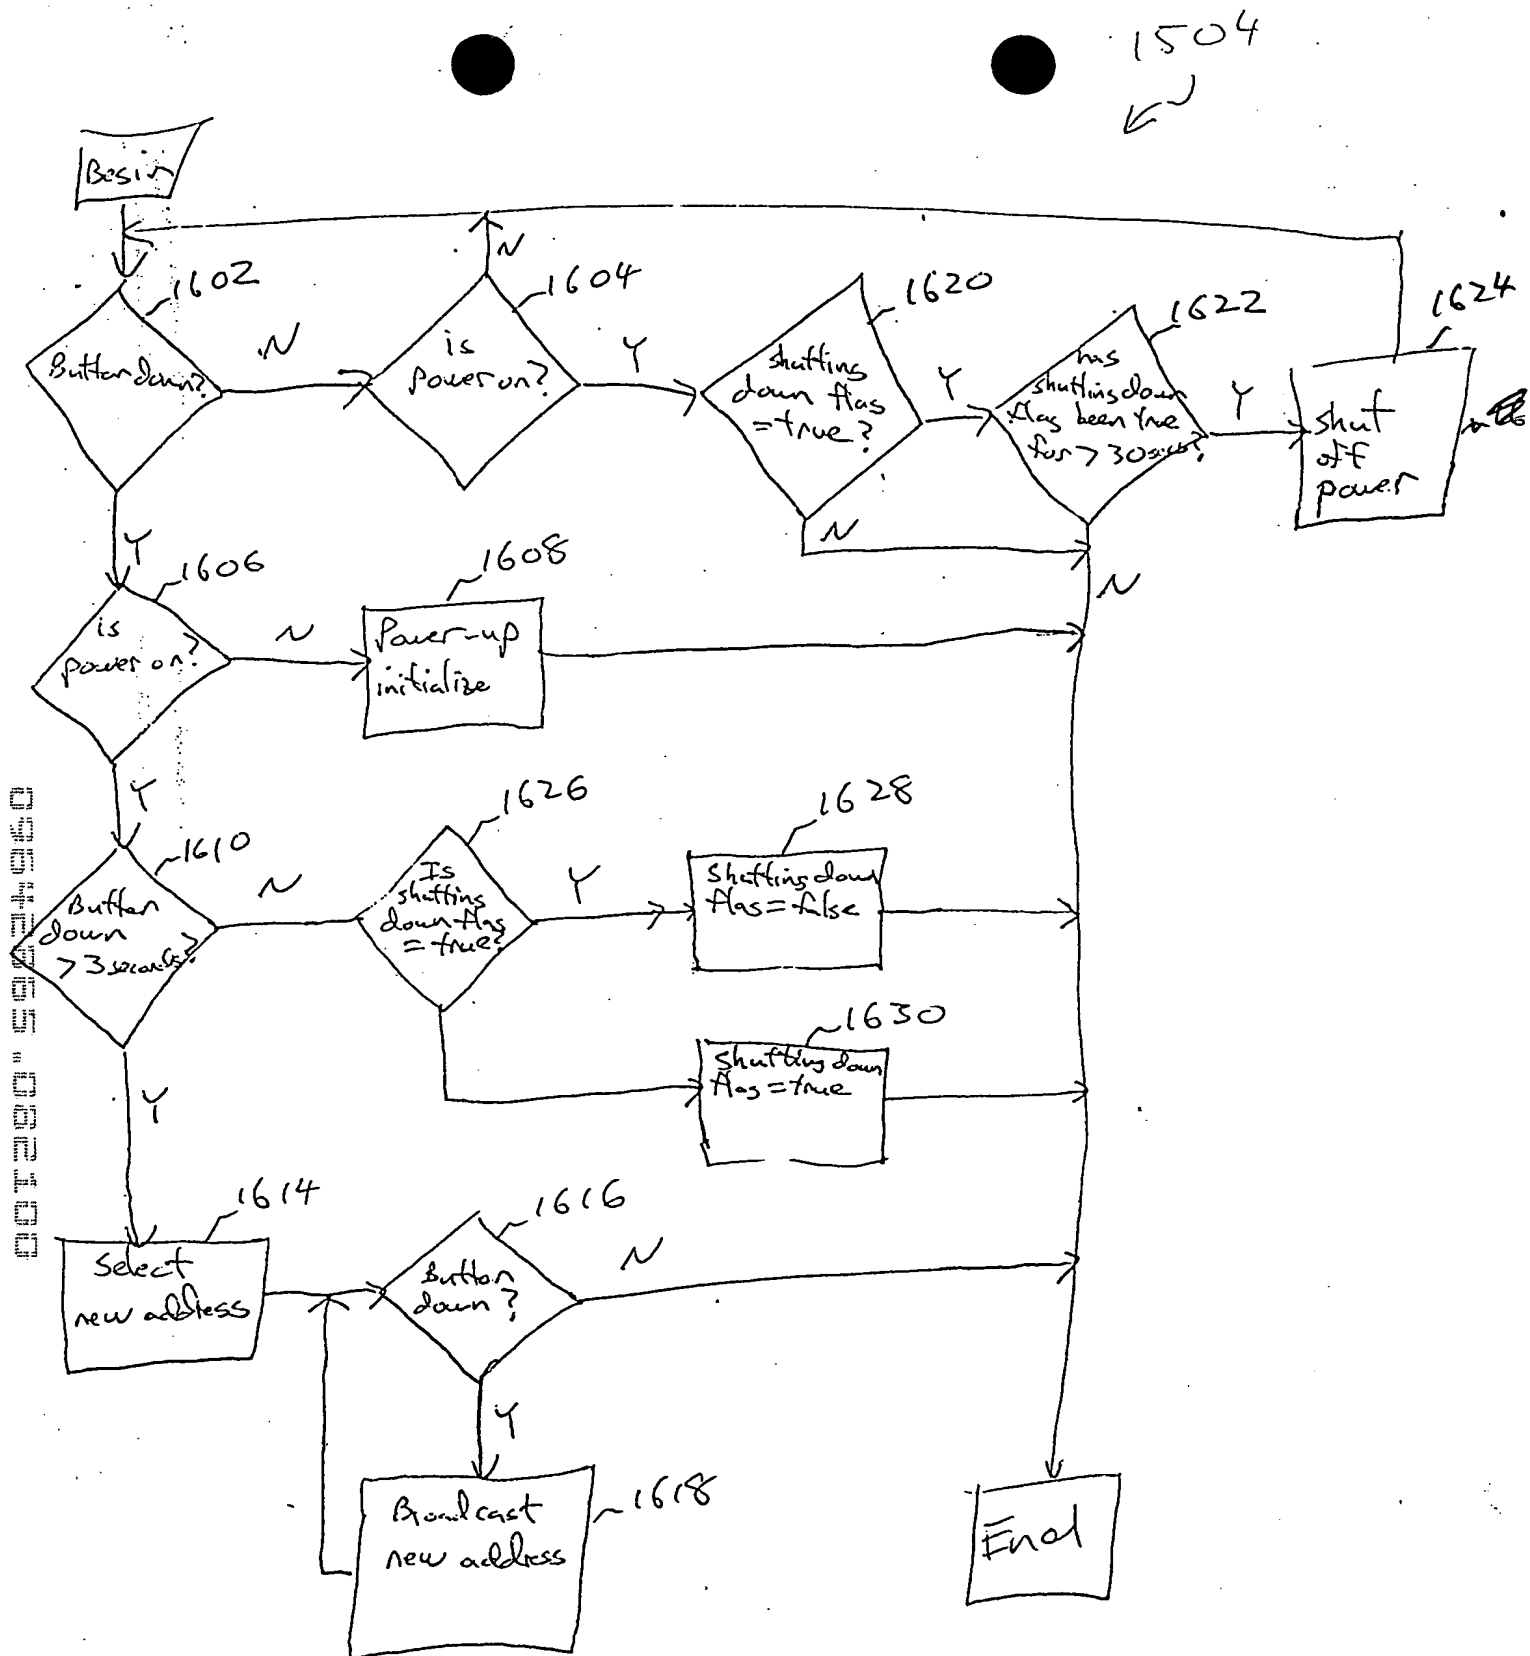 1504
Begin
1602
Button down?
N
1604
is
power on?
N
Y
1620
shutting
down flag
=true?
Y
N
1622
has
shutting down
flag been true
for > 30 secs?
Y
N
1624
shut
off
power
Y
1606
is
power on?
N
1608
Power-up
initialize
Y
1610
Button
down
> 3 seconds?
N
1626
Is
shutting
down flag
= true?
Y
1628
Shutting down
flag = false
1630
Shutting down
flag = true
Y
1614
Select
new address
1616
Button
down?
N
Y
1618
Broadcast
new address
End
09642965.082100